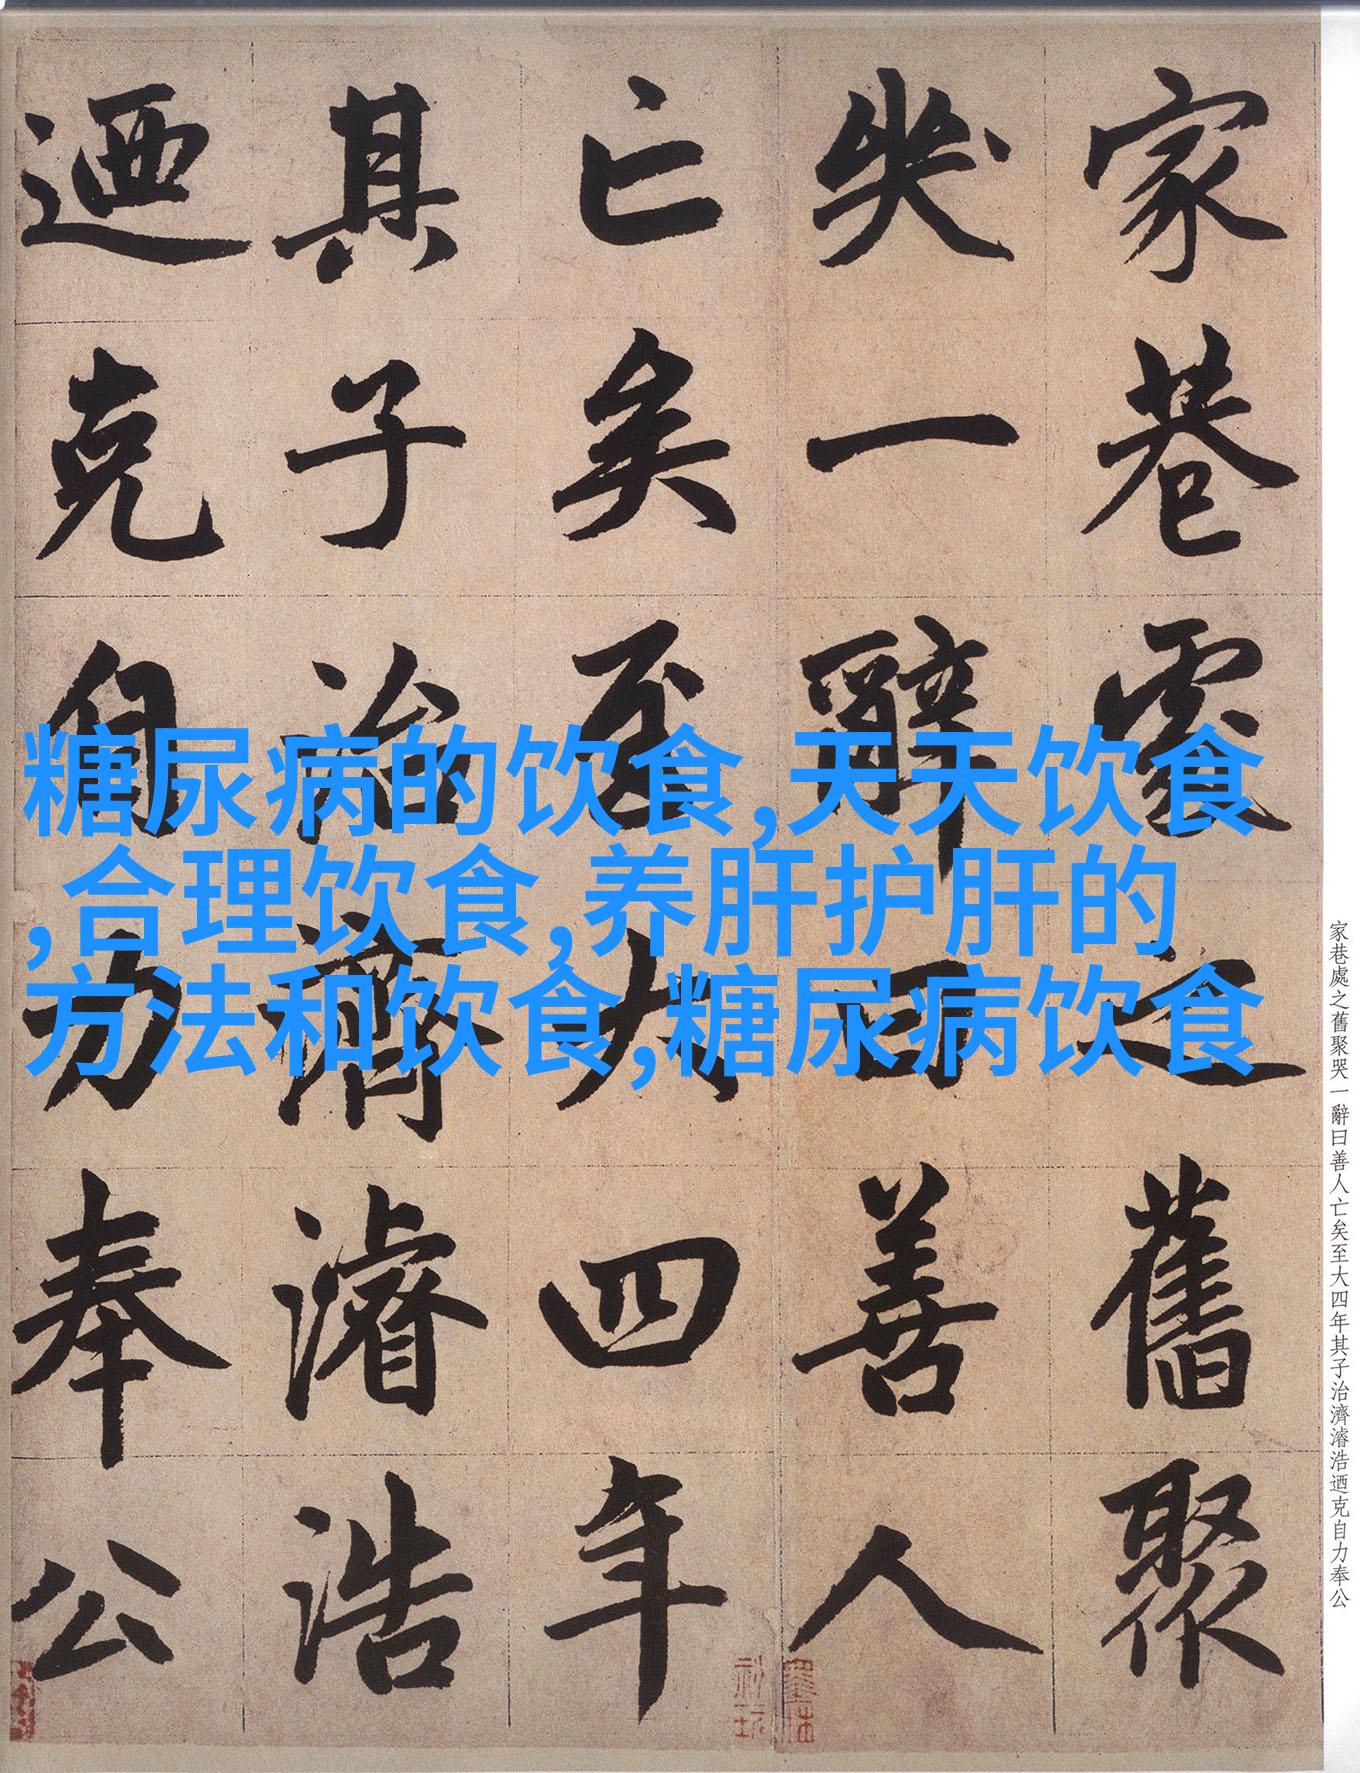 家巷處之舊聚
哭一辭曰善人
亡矣至大四年
其子治濟濬浩
迺克自力奉公
糖尿病的饮食,天天饮食
,合理饮食,养肝护肝的
方法和饮食,糖尿病饮食
家巷處之舊聚哭一辭曰善人亡矣至大四年其子治濟濬浩迺克自力奉公